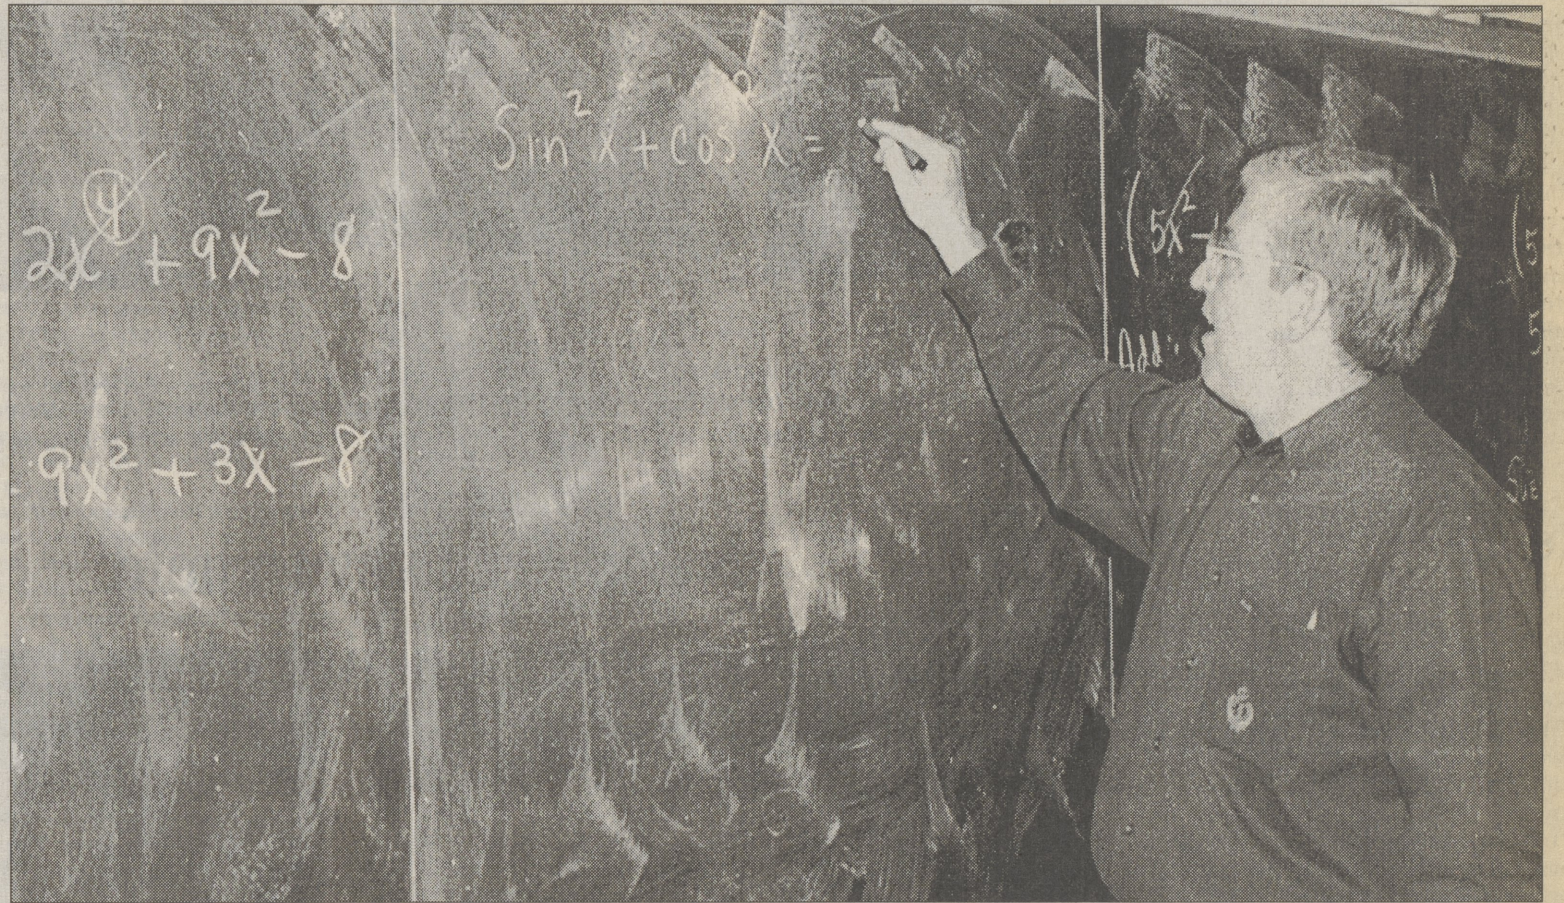 2x⁴ + 9x² - 8
9x² + 3x - 8
Sin²x + cos²x =
(5x² -
Add